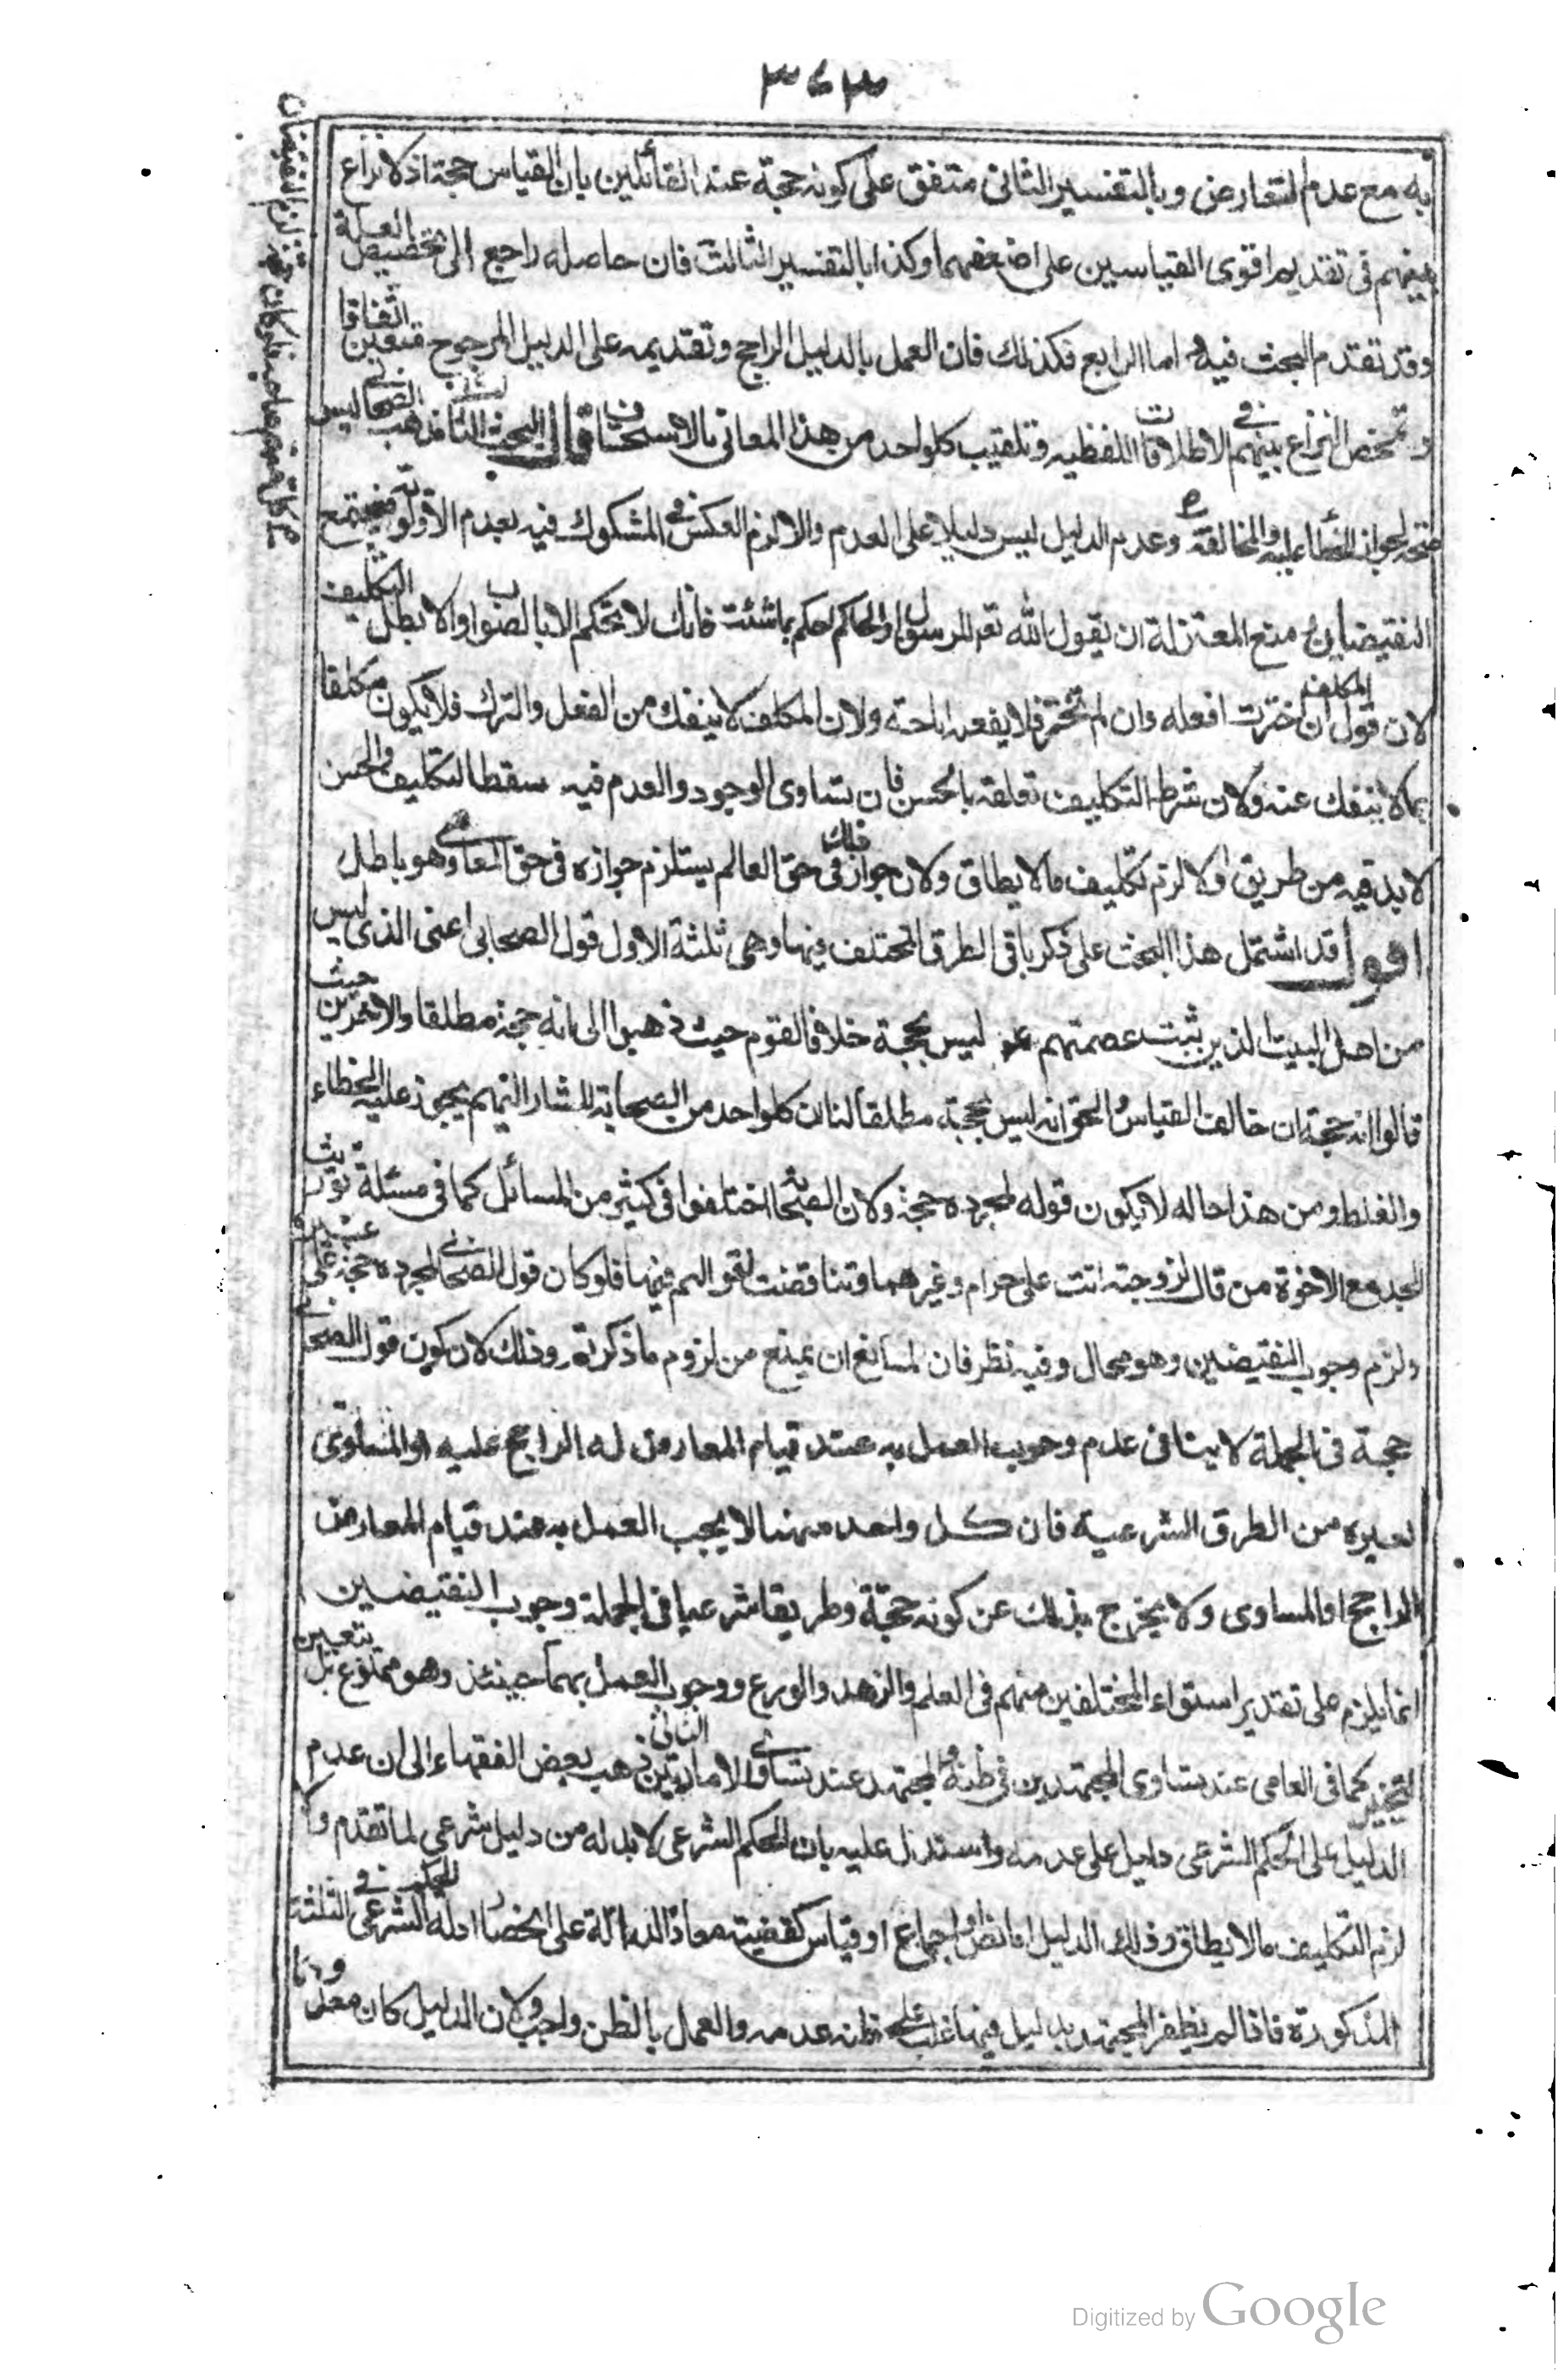 ٣٤٣
به مع عدم التعارض وبالتفسير الثانى متفق على كونه حجة عند القائلين بان القياس حجة اذ لا نزاع
بينهم فى تقديم اقوى القياسين على اضعفهما وكذا بالتفسير الثالث فان حاصله راجع الى تخصيص العلة
وقد تقدم البحث فيه اما الرابع فكذلك فان العمل بالدليل الراجح وتقديمه على الدليل المرجوح متعين اتفاقا
وتمحض النزاع بينهم فى الاطلاقات اللفظيه وتلقيب كل واحد من هذا المعانى بالاستحسان قال البحث الثامن مذهب الصحابى ليس
حجة لجواز الخطاء عليه والمخالفة وعدم الدليل ليس دليلا على العدم والا لزم العكس فى المشكوك فيه بعدم الاولوية فيجتمع
النقيضان منع المعتزلة ان يقول الله تعه للرسول او الحاكم احكم بما شئت فانك لا تحكم الا بالصواب والا بطل التكليف
لان قول المكلف ان اخترت افعله وان لم تختر فلا يفعه اباحة ولان المكلف لا ينفك من الفعل والترك فلا يكون مكلفا
بما لا ينفك عنه ولان شرط التكليف تعلقه بالحسن فان تساوى الوجود والعدم فيه سقط التكليف والحسن
لا بد فيه من طريق والا لزم تكليف ما لا يطاق ولان جواز ذلك فى حق العالم يستلزم جوازه فى حق العامى وهو باطل
اقول قد اشتمل هذا البحث على ذكر باقى الطرق المختلف فيها وهى ثلثة الاول قول الصحابى اعنى الذى ليس
من اهل البيت الذين ثبت عصمتهم ليس بحجة خلافا لقوم حيث ذهبوا الى انه حجة مطلقا والاخرين حيث
قالوا انه حجة ان خالف القياس والحق انه ليس بحجة مطلقا لنا ان كل واحد من الصحابة المشار اليهم يجوز عليه الخطاء
والغلط ومن هذا حاله لا يكون قوله لمجرده حجة ولان الصحابة اختلفوا فى كثير من المسائل كما فى مسئلة توريث
الجد مع الاخوة من قال لزوجته انت على حرام وغيرهما وتناقضت اقوالهم فيها فلو كان قول الصحابى لمجرده حجة على غيره
ولزم وجوب النقيضين وهو محال وفيه نظر فان لمانع ان يمنع من لزوم ما ذكرته وذلك لان كون قول الصحابى
حجة فى الجملة لا ينافى عدم وجوب العمل به عند قيام المعارض له الراجح عليه او المساوى
لغيره من الطرق الشرعية فان كل واحد منها لا يجب العمل به عند قيام المعارض
الراجح او المساوى ولا يخرج بذلك عن كونه حجة وطريقا شرعيا فى الجملة وجوب النقيضين
انما يلزم على تقدير استواء المختلفين منهم فى العلم والزهد والورع ووجوب العمل بهما حينئذ وهو ممنوع بل يتعين
التخيير كما فى العامى عند تساوى المجتهدين فى ظنه والمجتهد عند تساوى الامارتين الثانى ذهب بعض الفقهاء الى ان عدم
الدليل على الحكم الشرعى دليل على عدمه واستدل عليه بان الحكم الشرعى لا بد له من دليل شرعى لما تقدم والا
لزم التكليف ما لا يطاق وذلك الدليل اما نص او اجماع او قياس كقضية معاذ الدالة على انحصار ادلة الحكم الشرعى فى الثلثة
المذكورة فاذا لم يظفر المجتهد بدليل فيها غلب على ظنه عدمه والعمل بالظن واجب ولان الدليل كان معدوما
Digitized by Google